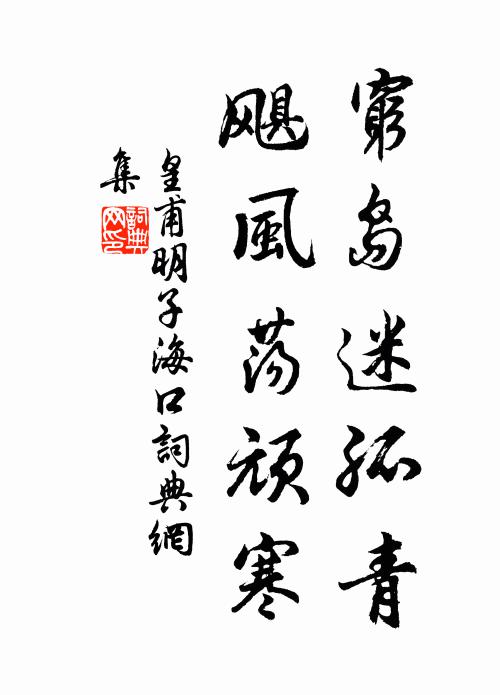 窮島迷孤青
颶風蕩頑寒
皇甫明子海口詞典網
集
詞典
网印